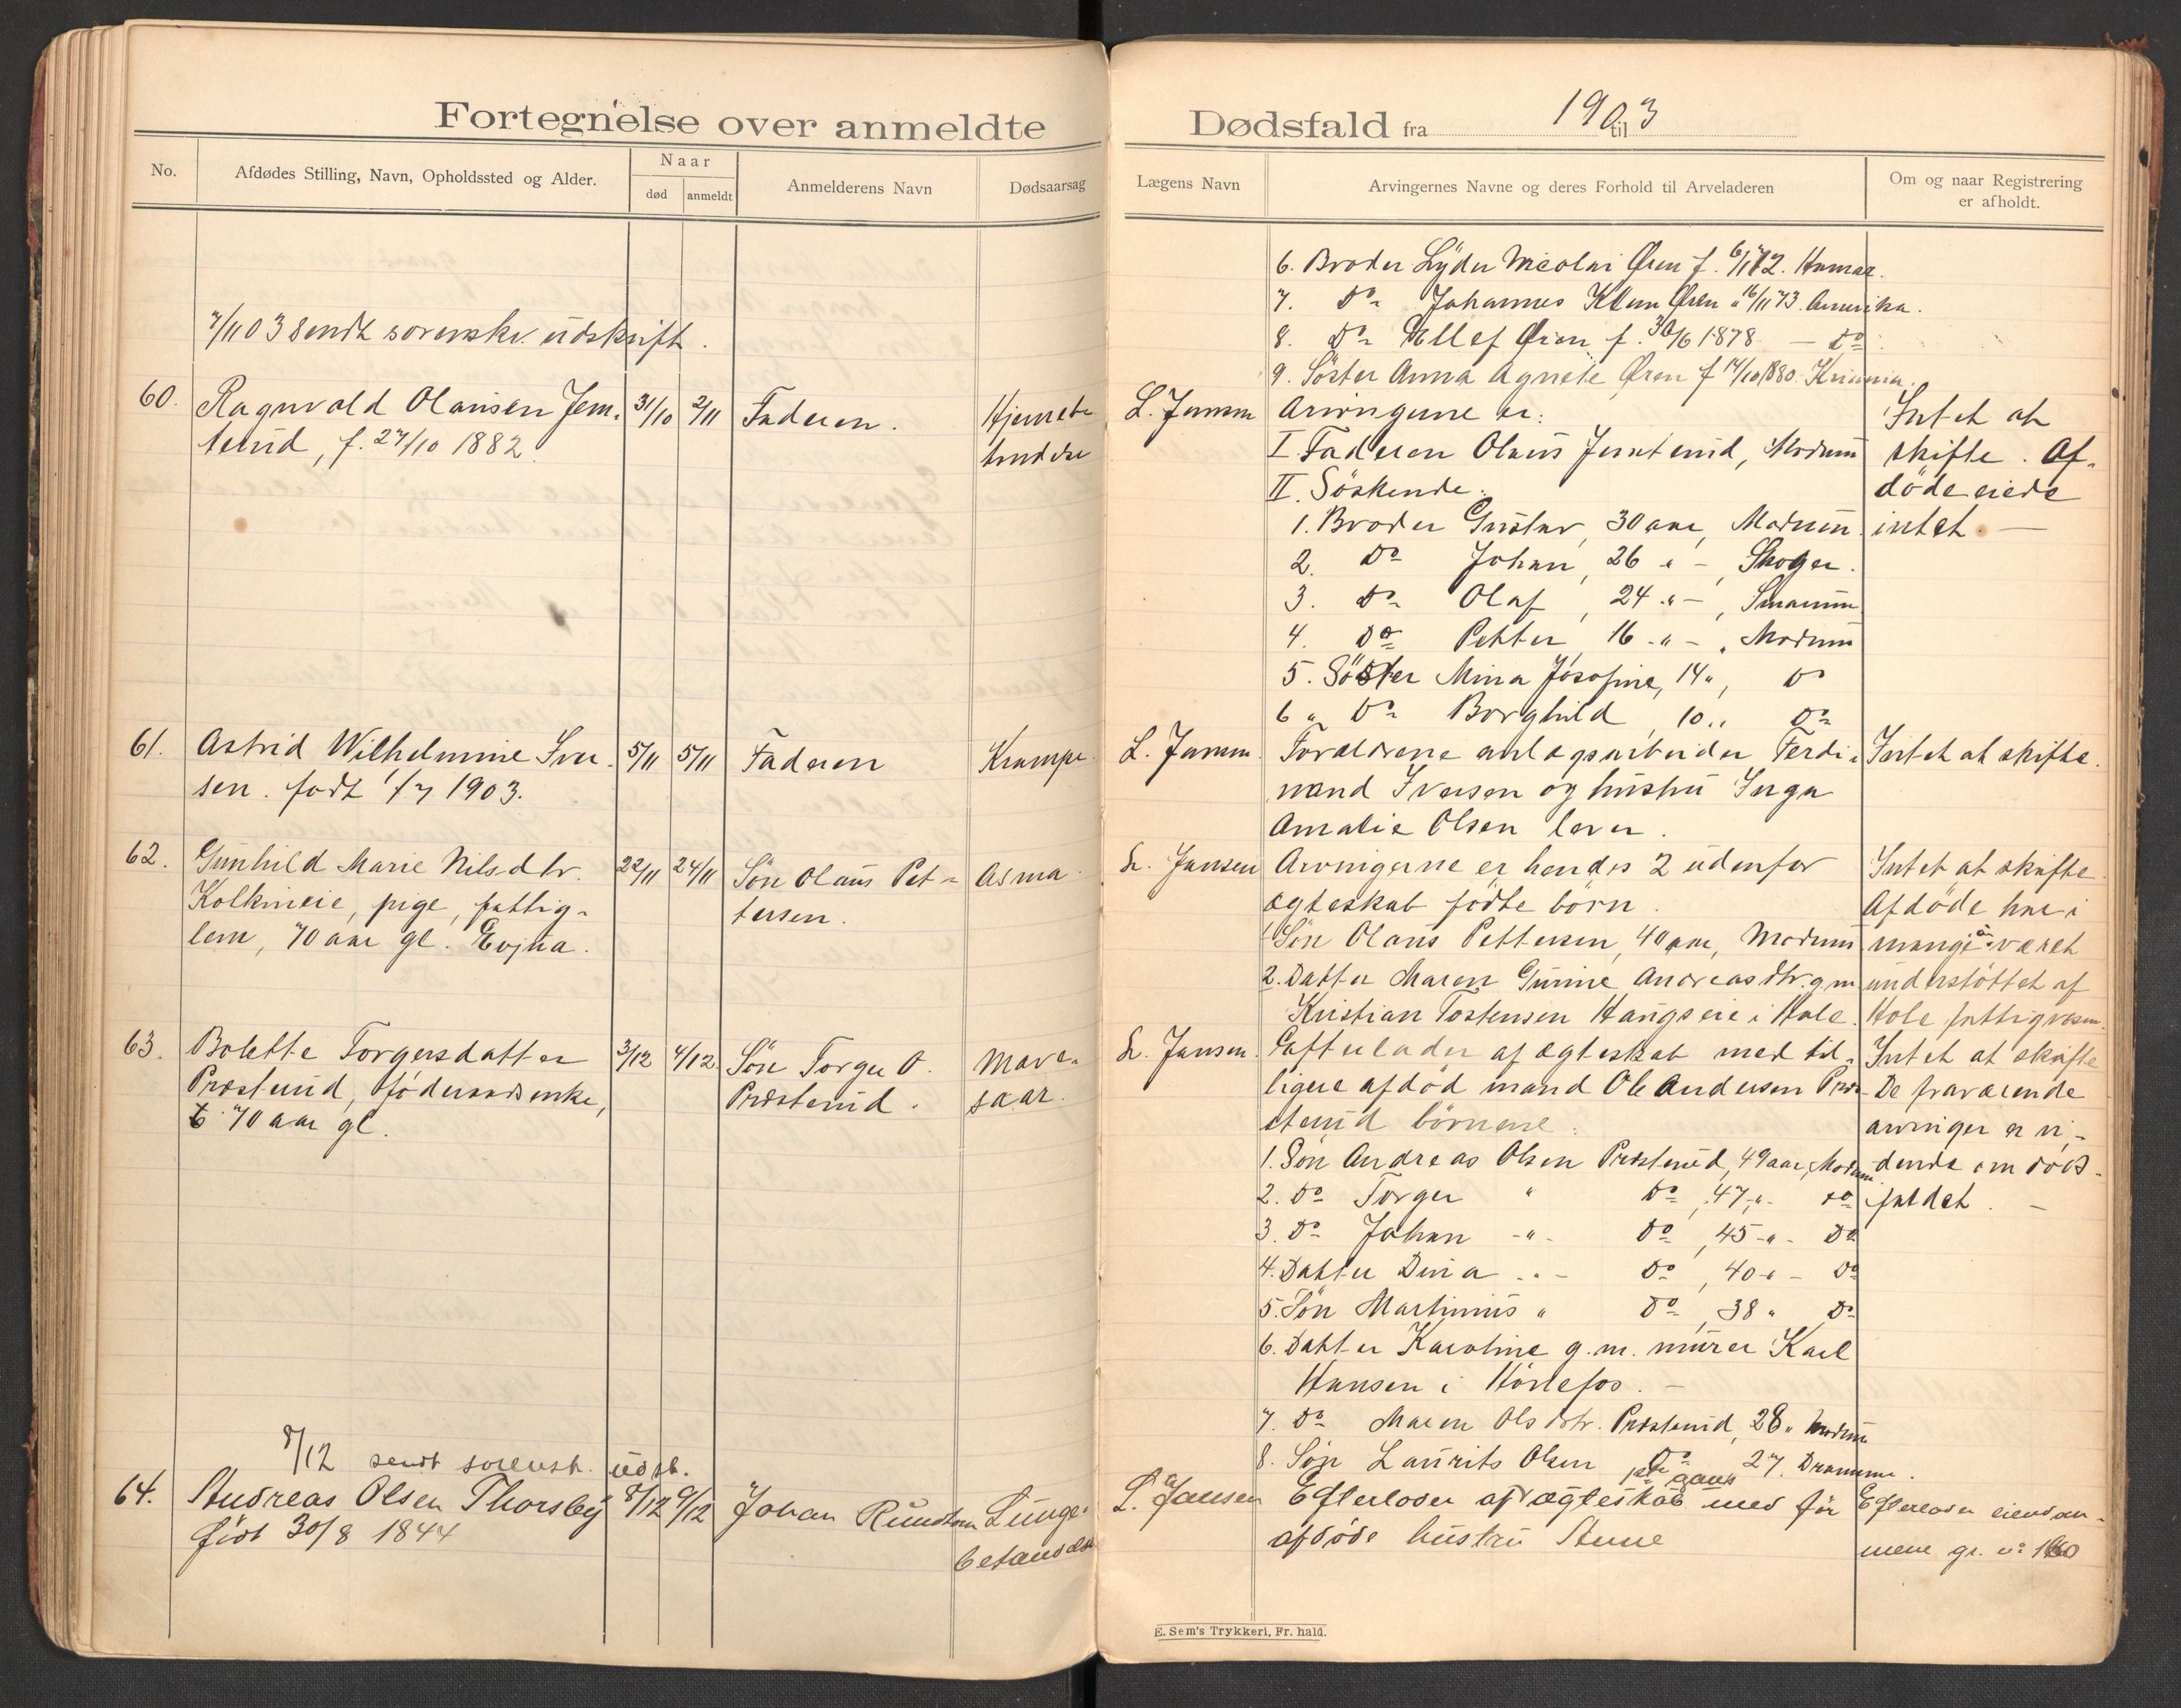 Fortegnelse over anmeldte
No.
Afdødes Stilling, Navn, Opholdssted og Alder.
Naar
død
anmeldt
Anmelderens Navn
Dødsaarsag
7/11 03 sendt sorenskr. udskrift.
60.
Ragnvald Olausen Jem-
terud, f. 27/10 1882
31/10
2/11
Faderen.
Hjernebe-
tendelse
61.
Astrid Wilhelmine Iver-
sen. født 1/7 1903.
5/11
5/11
Faderen
Krampe.
62.
Gunhild Marie Nilsdtr.
Kolkineie, pige, fattig-
lem, 70 aar gl. Evjua.
22/11
24/11
Søn Olaus Pet-
tersen.
Asma.
63.
Bolette Torgersdatter
Præsterud, føderaadsenke,
70 aar gl.
3/12
4/12
Søn Torger O.
Præsterud.
Mave-
saar.
8/12 sendt sorensk. udsk.
64.
Andreas Olsen Thorsby
født 30/8 1844
8/12
9/12
Johan
Lunge-
betændelse
Dødsfald fra 1903 til
Lægens Navn
Arvingernes Navne og deres Forhold til Arveladeren
Om og naar Registrering
er afholdt.
6. Broder Lyder Nicolai Øren f. 6/1 72. Hamar.
7. Do Johannes Klem Øren " 16/11 73. Amerika.
8. Do Ellef Øren f. 30/6 1878 — Do
9. Søster Anna Agnete Øren f 14/10 1880. Kriania.
L. Jansen
Arvingerne er:
I. Faderen Olaus Jemterud, Modum
II. Søskende:
1. Broder Gustav, 30 aar, Modum
2. Do Johan, 26 " – , Skoger.
3. Do Olaf, 24 " – , Snarum
4. Do Petter, 16 - " - , Modum
5. Søster Mina Josefine, 14 ", Do
6 " Do Borghild, 10 " Do
Intet at
skifte. Af-
døde eiede
intet. —
L. Jansen.
Forældrene anlægsarbeider Ferdi-
nand Iversen og hustru Inga
Amalie Olsen lever.
Intet at skifte.
L. Jansen
Arvingerne er hendes 2 udenfor
ægteskab fødte børn.
1 Søn Olaus Pettersen, 40 aar, Modum
2. Datter Maren Gurine Andreasdtr. g m
Kristian Tostensen Haugseie i Hole.
Intet at skifte.
Afdøde har i
mange år været
understøttet af
Hole fattigvæsen.
L. Jansen.
Efterlader af ægteskab med tid-
ligere afdød mand Ole Andersen Præ-
sterud børnene:
1. Søn Andreas Olsen Præsterud, 49 aar, Modum
2. Do Torger " Do, 47 - " - Do
3. Do Johan - " - Do, 45 - " - Do
4. Datter Dina - " - Do, 40 - " - Do
5. Søn Martinius " Do, 38 " Do
6. Datter Karoline g. m. murer Karl
Hansen i Hønefos. –
7. Do Maren Olsdtr. Præsterud, 28 " Modum
8. Søn Laurits Olsen Do 27. Drammen.
Intet at skifte
De fraværende
arvinger er vi-
dende om døds-
faldet. –
L. Jansen
Efterlader af 1ste gans ægteskab med før
afdøde hustru
Efterlader eiendom-
mene gr. no
E. Sem's Trykkeri, Fr. hald.